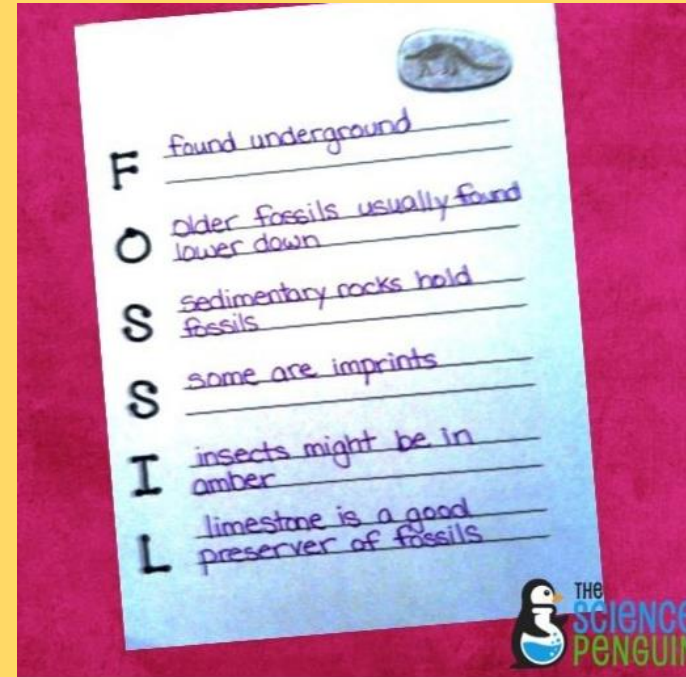 F found underground
O older fossils usually found
lower down
S sedimentary rocks hold
fossils
S some are imprints
I insects might be in
amber
L limestone is a good
preserver of fossils
THE
SCIENCE
PENGUIN